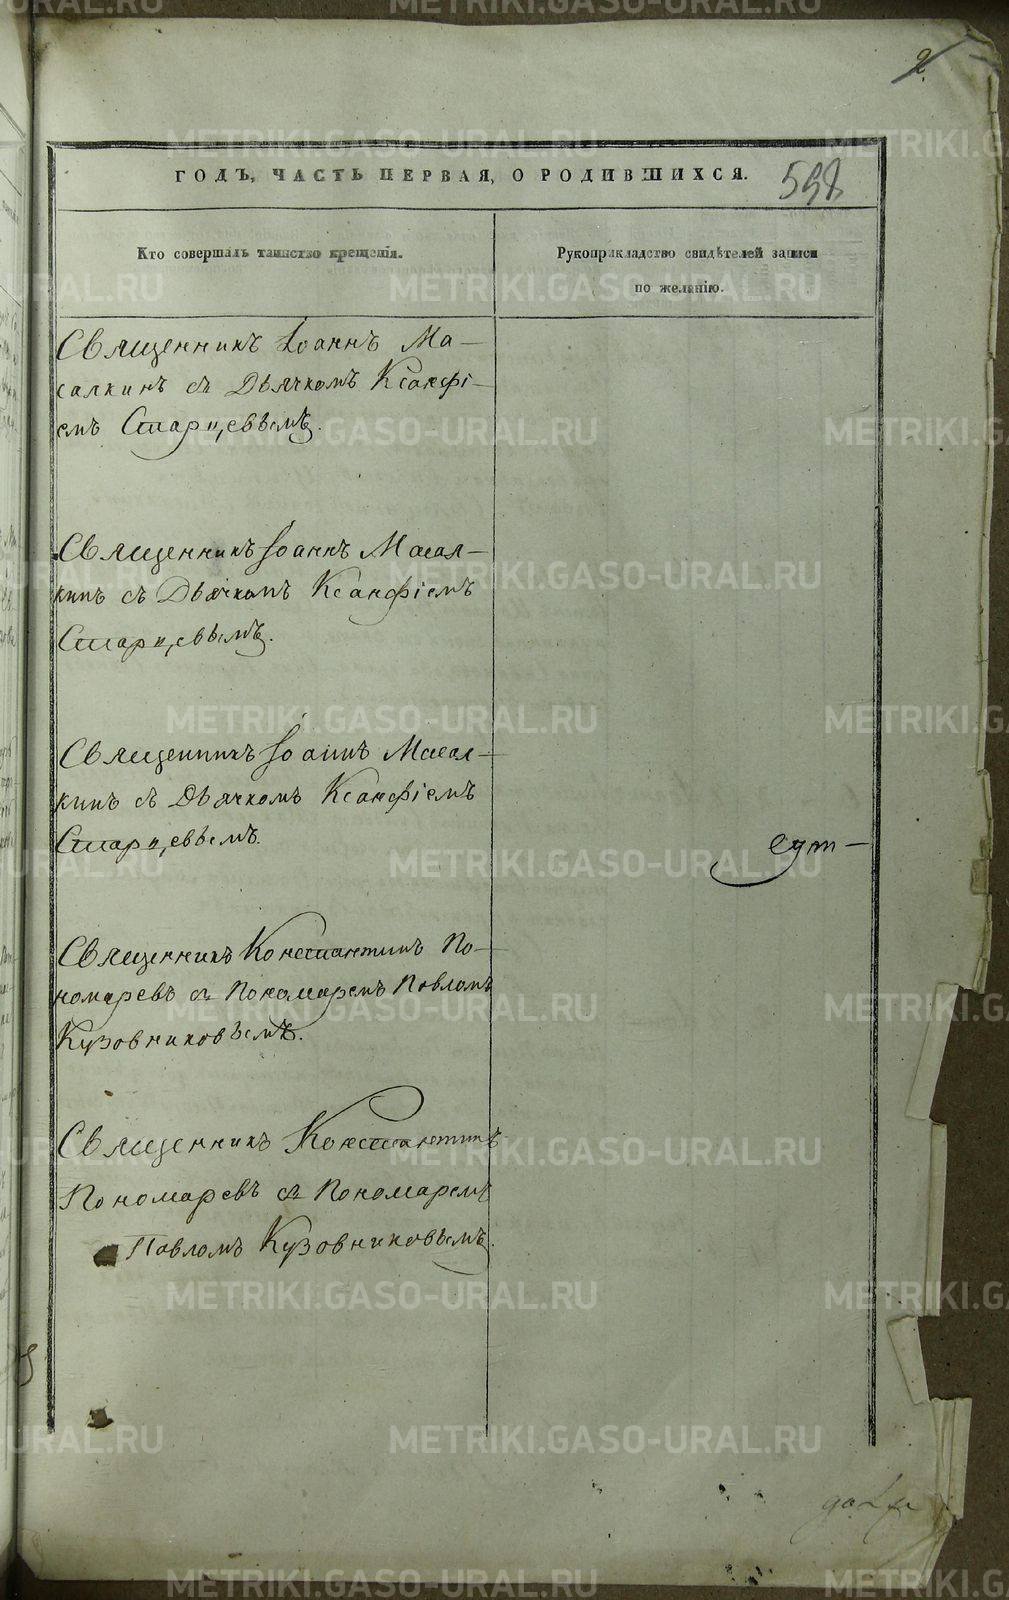 2.
ГОДЪ, ЧАСТЬ ПЕРВАЯ, О РОДИВШИХСЯ.
598
Кто совершалъ таинство крещенія.
Рукоприкладство свидѣтелей записи
по желанію.
Священникъ Іоаннъ Ма-
салкинъ съ Дьячкомъ Ксанфі-
емъ Старцевымъ.
Священникъ Іоаннъ Масал-
кинъ съ Дьячкомъ Ксанфіемъ
Старцевымъ.
Священникъ Іоаннъ Масал-
кинъ съ Дьячкомъ Ксанфіемъ
Старцевымъ.
Священникъ Константинъ По-
номаревъ съ Пономаремъ Павломъ
Кузовниковымъ.
Священникъ Константинъ
Пономаревъ съ Пономаремъ
Павломъ Кузовниковымъ.
METRIKI.GASO-URAL.RU